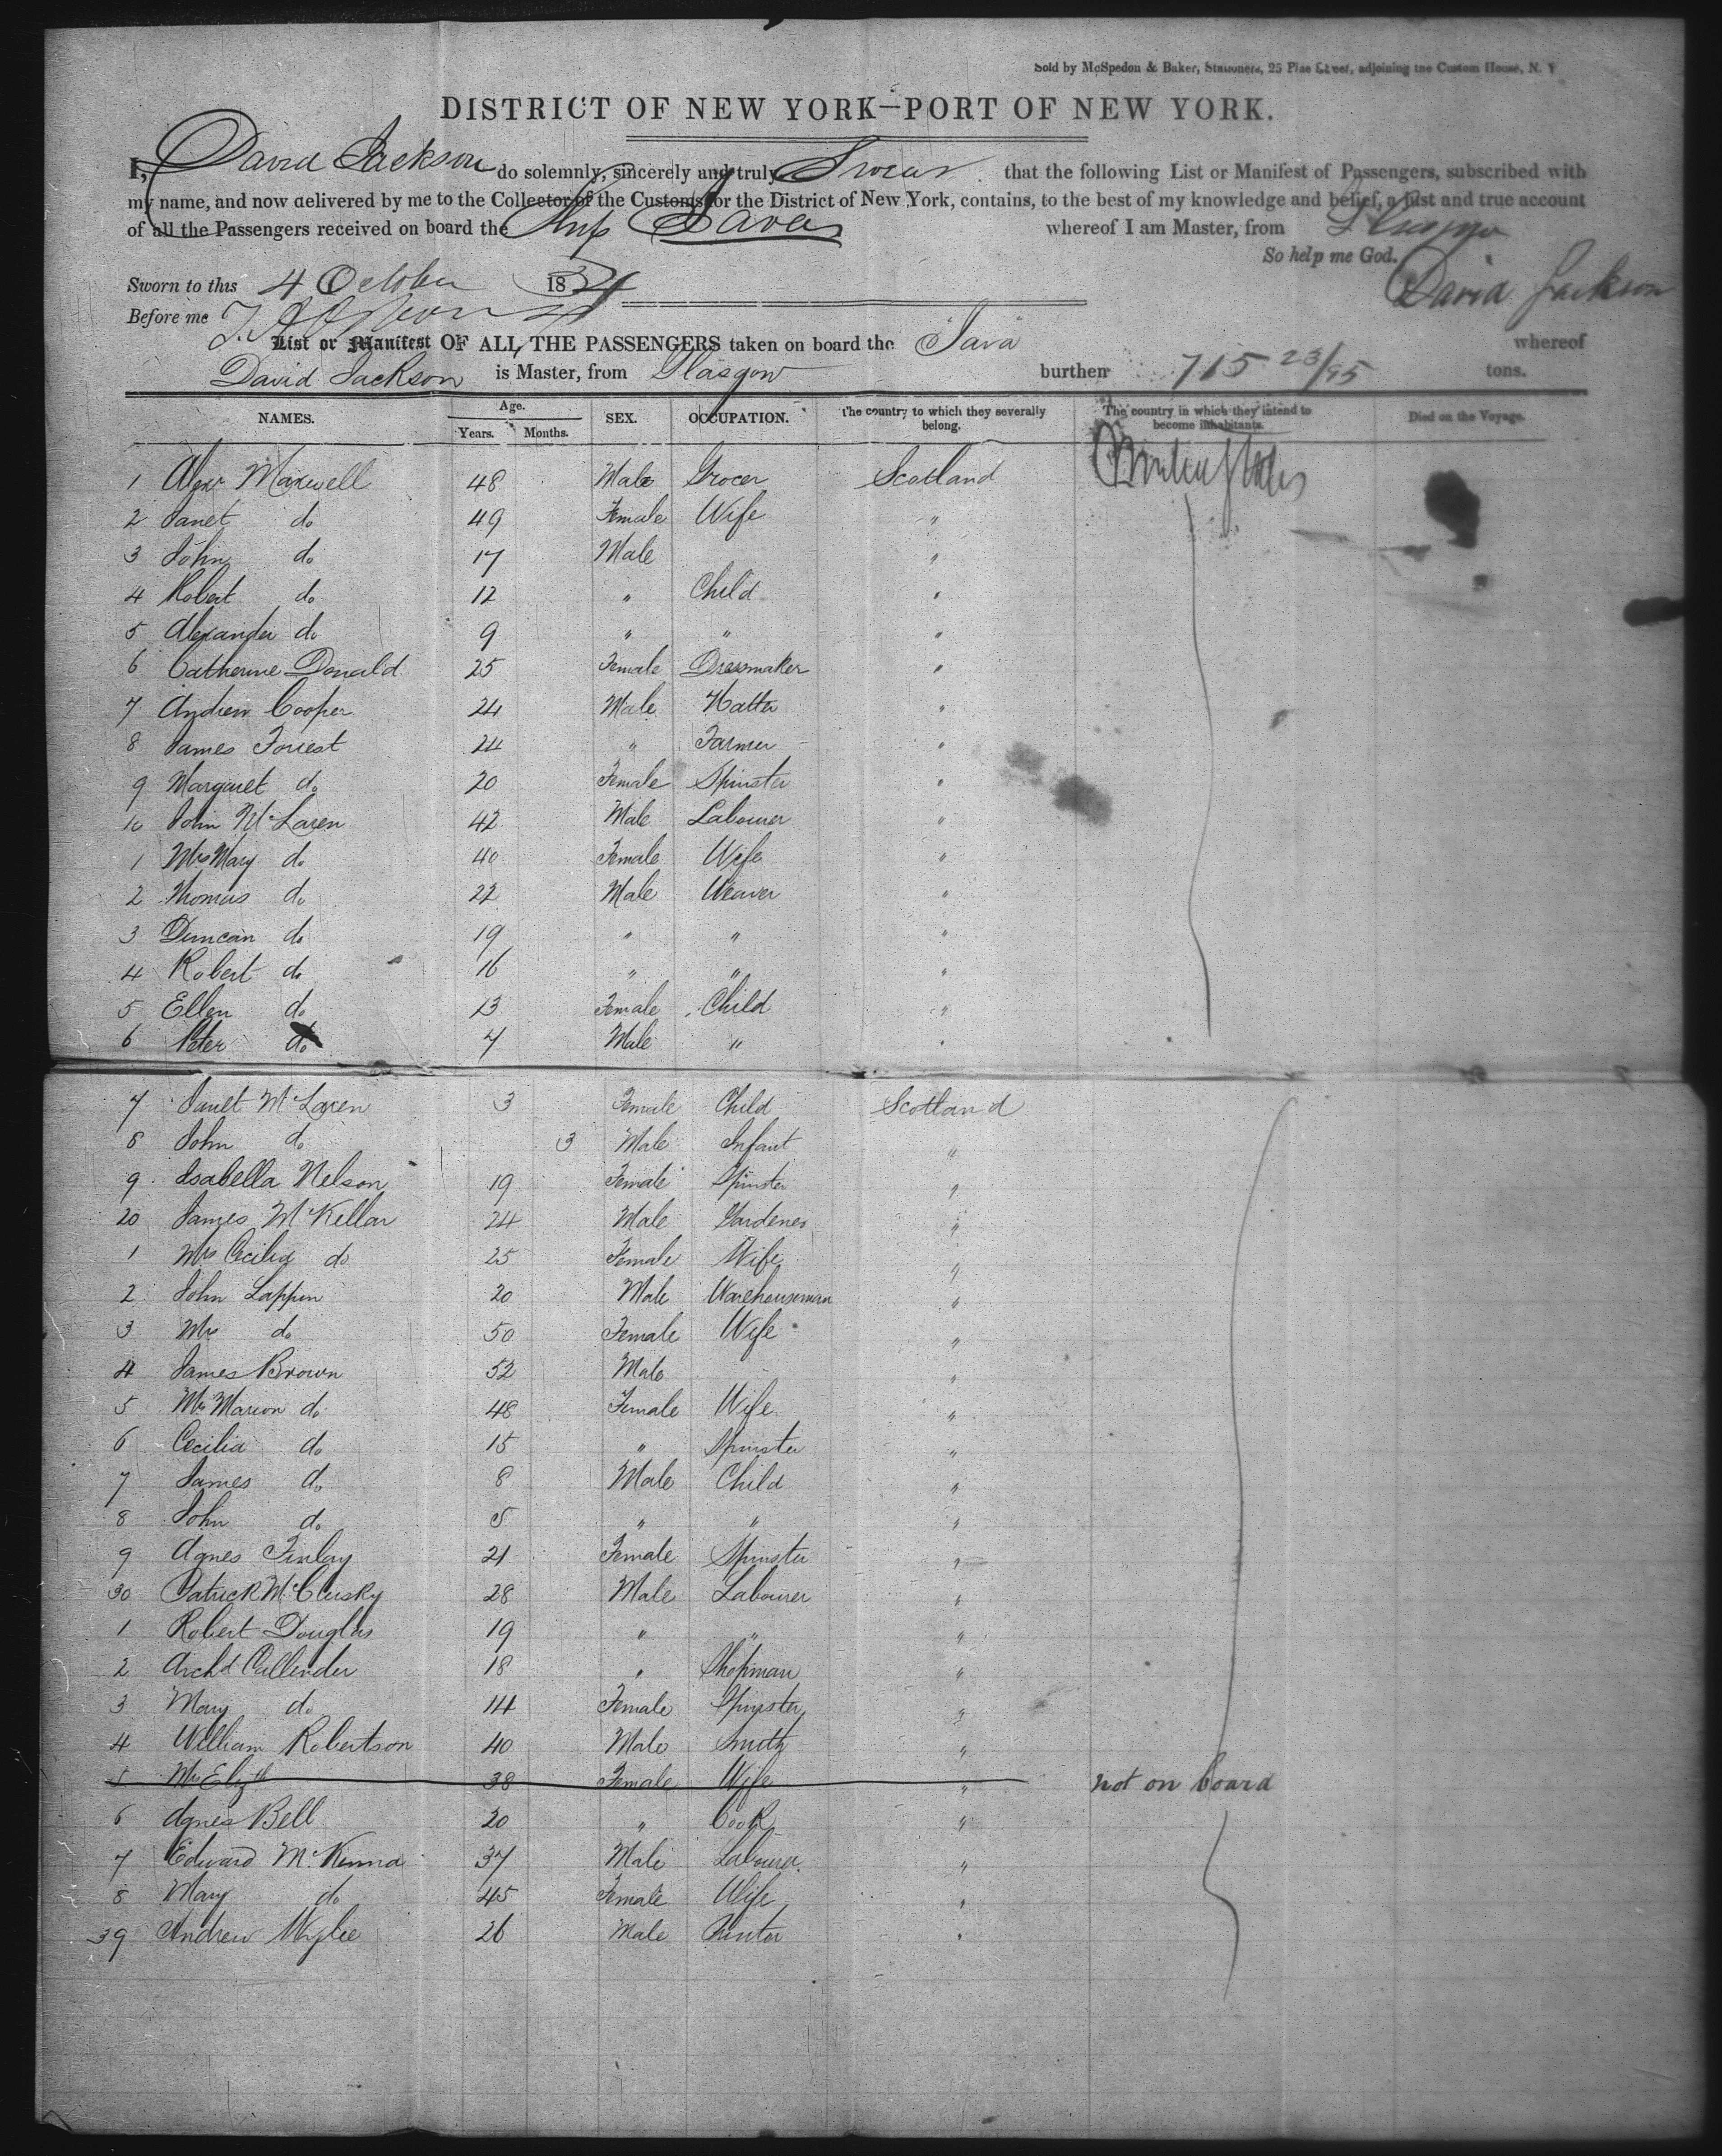 Sold by McSpedon & Baker, Stationers, 25 Pine Street, adjoining the Custom House, N. Y
DISTRICT OF NEW YORK—PORT OF NEW YORK.
I, David Jackson do solemnly, sincerely and truly Swear that the following List or Manifest of Passengers, subscribed with
my name, and now delivered by me to the Collector of the Customs for the District of New York, contains, to the best of my knowledge and belief, a just and true account
of all the Passengers received on board the Ship Java whereof I am Master, from Glasgow
So help me God.
Sworn to this 4 October 18 David Jackson
Before me
List or Manifest OF ALL THE PASSENGERS taken on board the Java whereof
David Jackson is Master, from Glasgow burthen 715 23/95 tons.
NAMES. Age. Years. Months. SEX. OCCUPATION. The country to which they severally belong. The country in which they intend to become inhabitants. Died on the Voyage.
1 Alexr Maxwell 48 Male Grocer Scotland United States
2 Janet do 49 Female Wife "
3 John do 17 Male "
4 Robert do 12 " Child "
5 Alexander do 9 " " "
6 Catherine Donald 25 Female Dressmaker "
7 Andrew Cooper 24 Male Hatter "
8 James Forrest 24 " Farmer "
9 Margaret do 20 Female Spinster "
10 John McLaren 42 Male Labourer "
1 Mrs Mary do 40 Female Wife "
2 Thomas do 22 Male Weaver "
3 Duncan do 19 " " "
4 Robert do 16 " " "
5 Ellen do 13 Female Child "
6 Peter do 7 Male " "
7 Janet McLaren 3 Female Child Scotland
8 John do 3 Male Infant "
9 Isabella Nelson 19 Female Spinster "
20 James McKellar 24 Male Gardener "
1 Mrs Cecilia do 25 Female Wife "
2 John Lappin 20 Male Warehouseman "
3 Mrs do 50 Female Wife "
4 James Brown 52 Male "
5 Mrs Marion do 48 Female Wife "
6 Cecilia do 15 " Spinster "
7 James do 8 Male Child "
8 John do 5 " " "
9 Agnes Finlay 21 Female Spinster "
30 Patrick McClusky 28 Male Labourer "
1 Robert Douglas 19 " " "
2 Archd Callender 18 " Shopman "
3 Mary do 14 Female Spinster "
4 William Robertson 40 Male Smith "
5 Mrs Elizth 38 Female Wife " not on board
6 Agnes Bell 20 " Cook "
7 Edward McKenna 37 Male Labourer "
8 Mary do 45 Female Wife "
39 Andrew Wylie 26 Male "